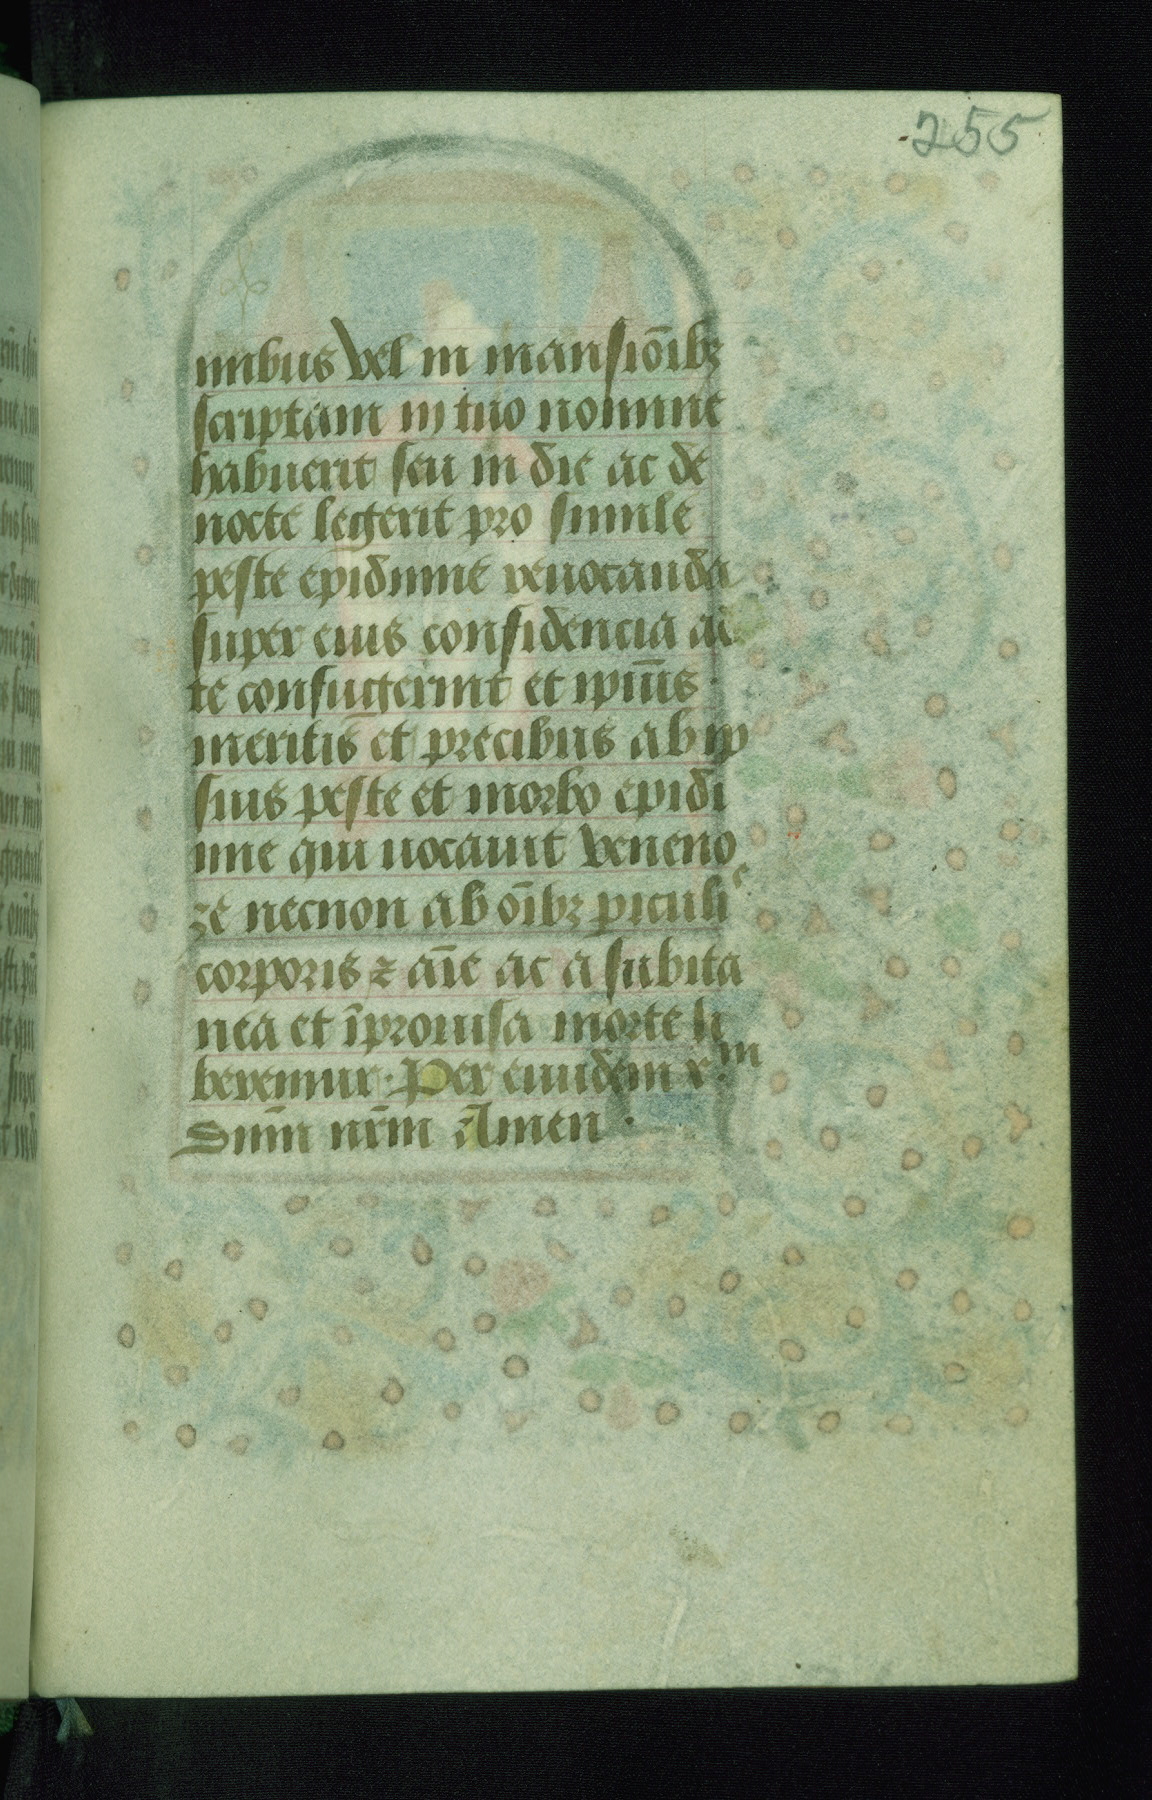 255
nnbus vel in mansiōibꝫ
scriptam in tuo nomine
habuerit seu in die ac de
nocte legerit pro simile
peste epidimie reuocanda
super eius confidencia ad
te confugerint et ipīus
meritis et precibus ab ip
sius peste et morbo epidi
mie qui uocauit veneno
ze necnon ab oībꝫ piculis
corporis ⁊ aīe ac a subita
nea et īprouisa morte li
beremur · Per eundem x̄m
Dnm̄ nr̄m Amen ·